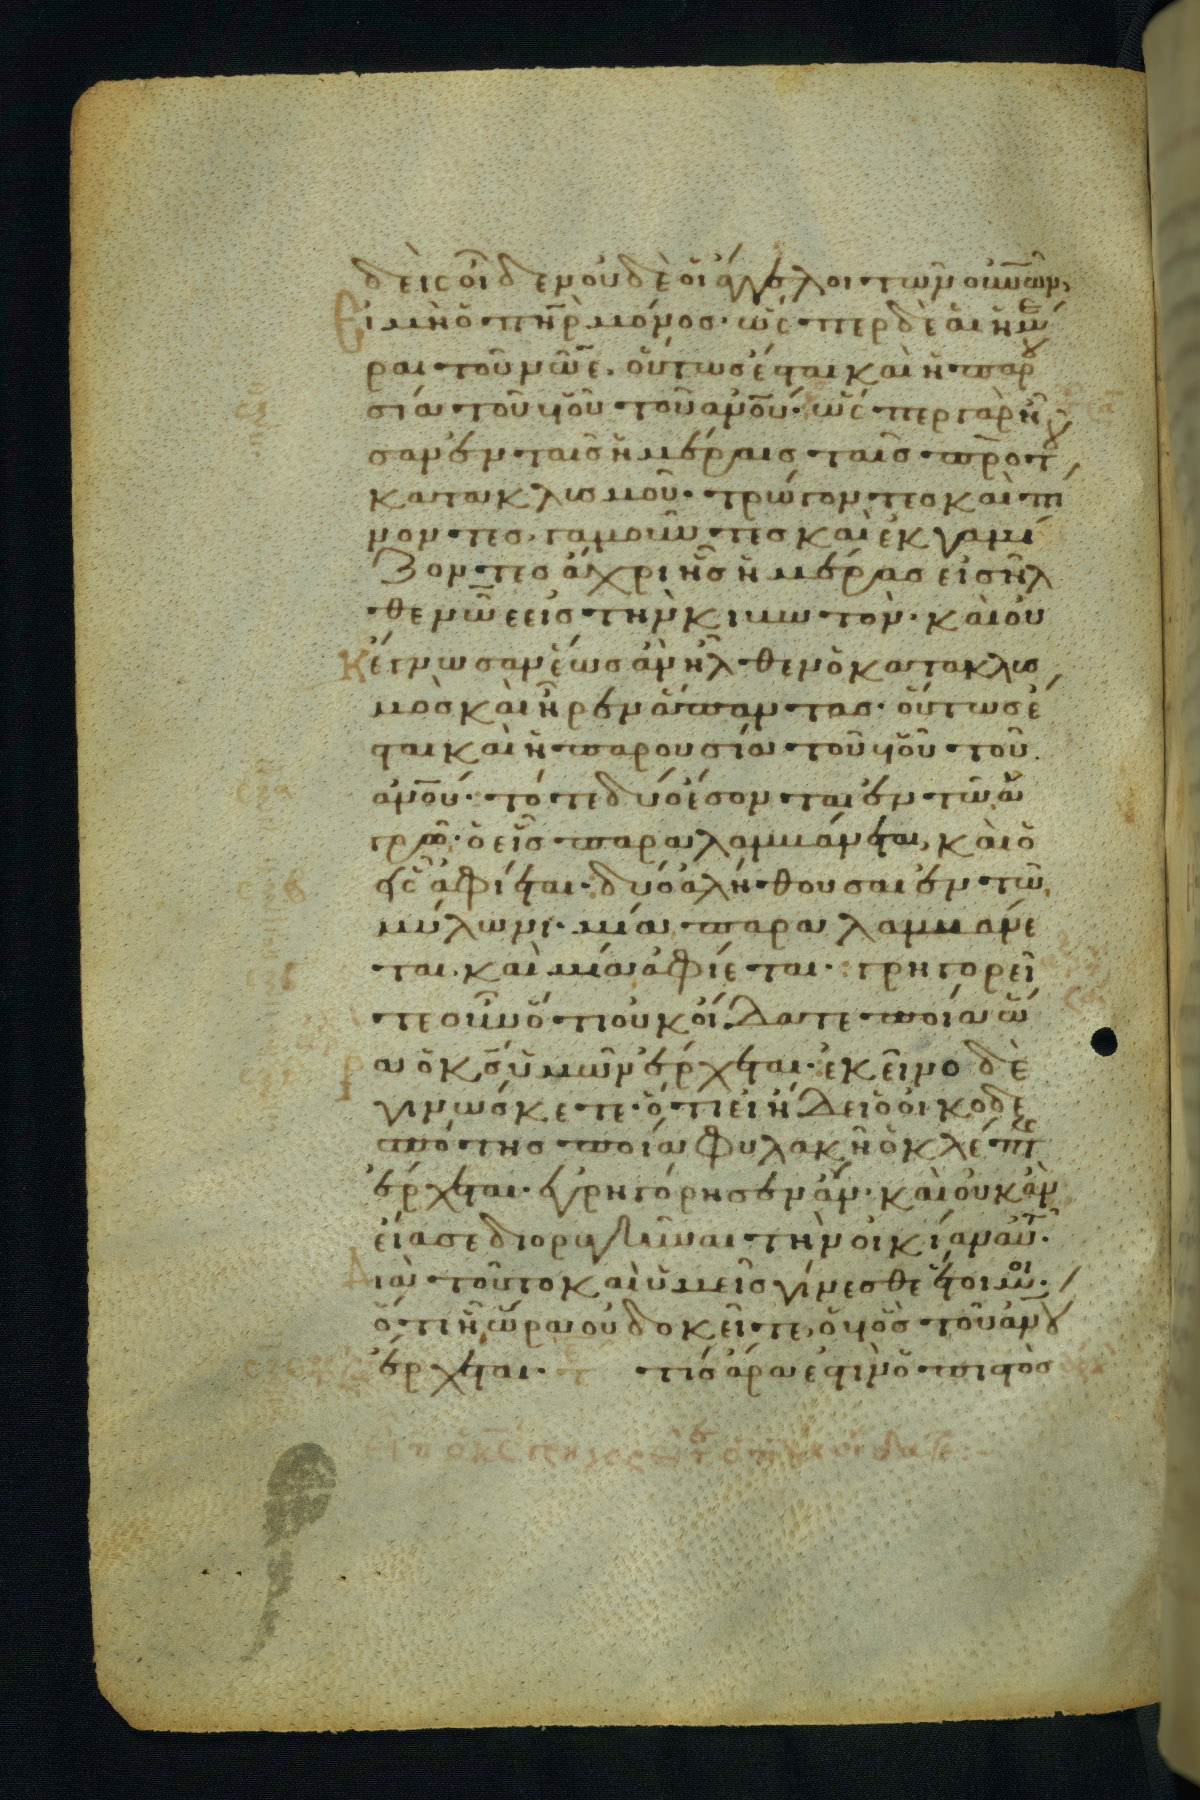 δεὶς οἶδεν οὐδὲ οἱ ἄγγελοι τῶν οὐν̅ῶν,
Εἰ μὴ ὁ πη̅ρ μόνος. ὥσπερ δὲ αἱ ἡμέ
ραι τοῦ νῶε. οὕτως ἔσται καὶ ἡ παρου
σία τοῦ υἱοῦ τοῦ ἀν̅ου· ὥσπερ γὰρ ἦ
σαν ἐν ταῖς ἡμέραις ταῖς πρὸ τοῦ
κατακλυσμοῦ. τρώγοντες καὶ πί
νοντες, γαμοῦντες καὶ ἐκγαμί
ζοντες ἄχρι ἧς ἡμέρας εἰσῆλ
θε νῶε εἰς τὴν κιβωτὸν. καὶ οὐ
κ ἔγνωσαν ἕως ἂν ἦλθεν ὁ κατακλυ
σμὸς καὶ ἦρεν ἅπαντας. οὕτως ἔ
σται καὶ ἡ παρουσία τοῦ υἱοῦ τοῦ
ἀν̅ου· τότε δύο ἔσονται ἐν τῶ ἀ
γρῶ. ὁ εἷς παραλαμβάνεται, καὶ ὁ
εἷς ἀφίεται. δύο ἀλήθουσαι ἐν τῶ
μύλωνι. μία παραλαμβάνε
ται. καὶ μία ἀφίεται. γρηγορεῖ
τε οὖν ὅτι οὐκ οἴδατε ποία ὥ
ρα ὁ κ̅ς ὑμῶν ἔρχεται. ἐκεῖνο δὲ
γινώσκετε. ὅτι εἰ ἤδει ὁ οἰκοδε
σπότης ποία φυλακῆ ὁ κλέπτης
ἔρχεται. ἐγρηγόρησεν ἄν. καὶ οὐκ ἂν
εἴασε διορυγῆναι τὴν οἰκίαν αὐτοῦ.
Διὰ τοῦτο καὶ ὑμεῖς γίνεσθε ἕτοιμοι.
ὅτι ἧ ὥρα οὐ δοκεῖτε, ὁ υἱὸς τοῦ ἀνου
ἔρχεται. τίς ἄρα ἐστὶν ὁ πιστὸς